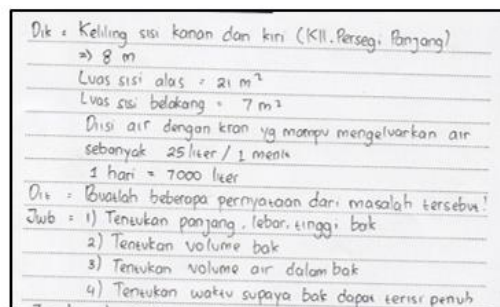 Dik : Keliling sisi kanan dan kiri (Kll. Persegi Panjang)
=> 8 m
Luas sisi alas = 21 m²
Luas sisi belakang = 7 m²
Diisi air dengan kran yg mampu mengeluarkan air
sebanyak 25 liter / 1 menit
1 hari = 7000 liter
Dit : Buatlah beberapa pernyataan dari masalah tersebut!
Jwb : 1) Tentukan panjang, lebar, tinggi bak
2) Tentukan volume bak
3) Tentukan volume air dalam bak
4) Tentukan waktu supaya bak dapat terisi penuh